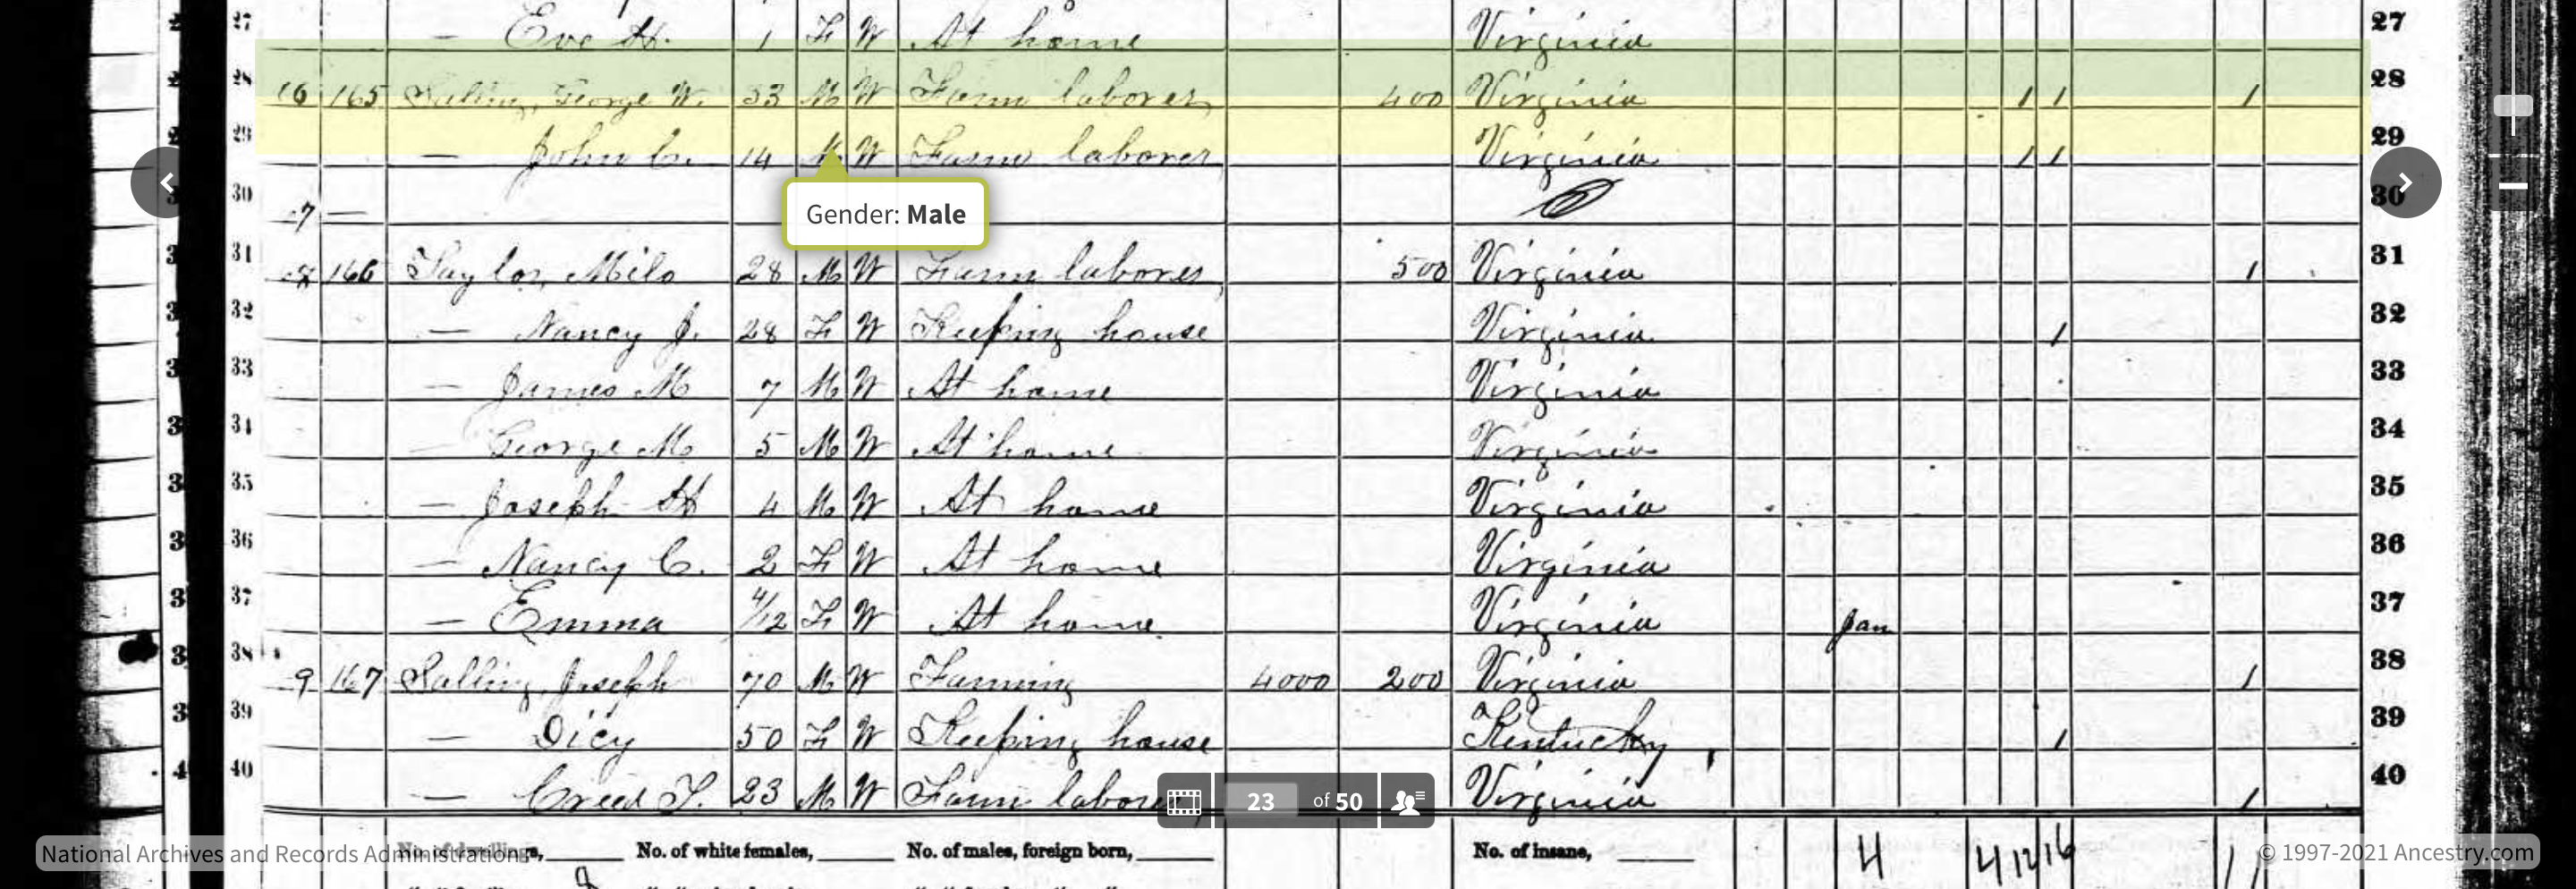 27 — Eve H. 1 F W At home Virginia 27
28 16 165 Salling, George W. 33 M W Farm laborer 400 Virginia 1 1 1 28
29 — John C. 14 M W Farm laborer Virginia 1 1 29
30 7 — 30
Gender: Male
31 166 Saylor, Milo 28 M W Farm laborer 500 Virginia 1 31
32 — Nancy J. 28 F W Keeping house Virginia 1 32
33 — James M 7 M W At home Virginia 33
34 — George M 5 M W At home Virginia 34
35 — Joseph H 4 M W At home Virginia 35
36 — Nancy C. 2 F W At home Virginia 36
37 — Emma 4/12 F W At home Virginia Jan 37
38 9 167 Salling, Joseph 70 M W Farming 4000 200 Virginia 1 38
39 — Dicy 50 F W Keeping house Kentucky 1 39
40 — Creed T. 23 M W Farm laborer Virginia 1 40
23 of 50
No. of dwellings, No. of white females, No. of males, foreign born, No. of insane, 4 4 12 16 11
National Archives and Records Administration
© 1997-2021 Ancestry.com